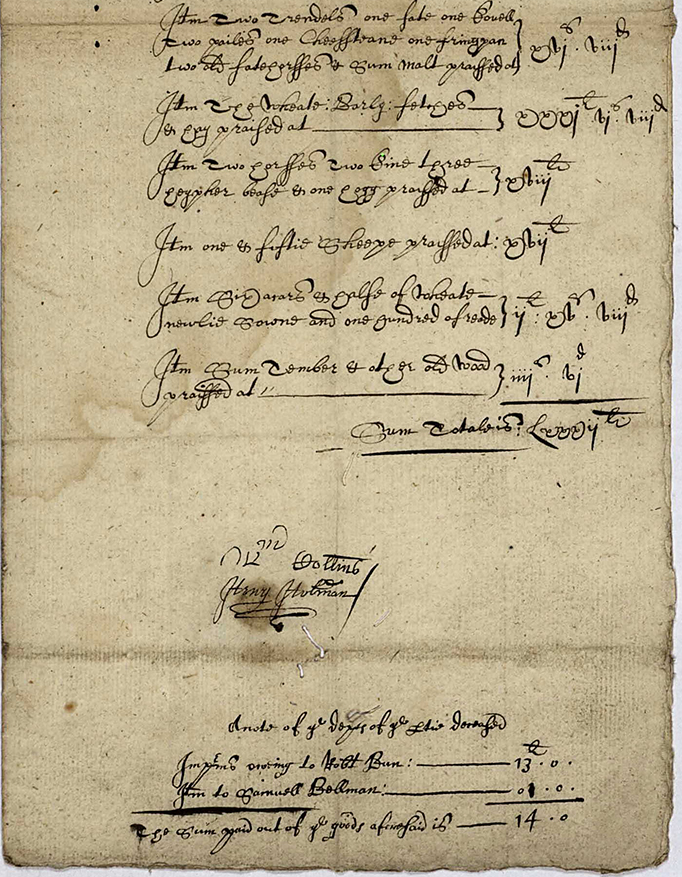 Itm Two Trendels one fate one Kovell
two pailes one Cheesfteane one fringpan
two old fatehorsses & Sum Malt praissed at xvi s viii d
Itm The wheate: Barly: fetches
& hay praised at xxxi l vi s viii d
Itm Two horsses Two kine three
heypher bease & one hogg praissed at xviii li
Itm one & fiftie Sheepe praissed at: xvii l
Itm Six acars & halfe of wheate
newlie Sowne and one hundred of reede ii l: xv s: viii d
Itm Sum Tember & other old wood
praissed at iiii s vi d
Sum Totale is: Lxxxii li
Will m Collins
Henry Holman
A note of ye depts of ye ptie deceased
Imprms oweing to Robt Bun: 13 l . 0 .
Itm to Samuell Bellman: 01 . 0 .
The Sum paid out of ye goods aforesaid is 14 . 0